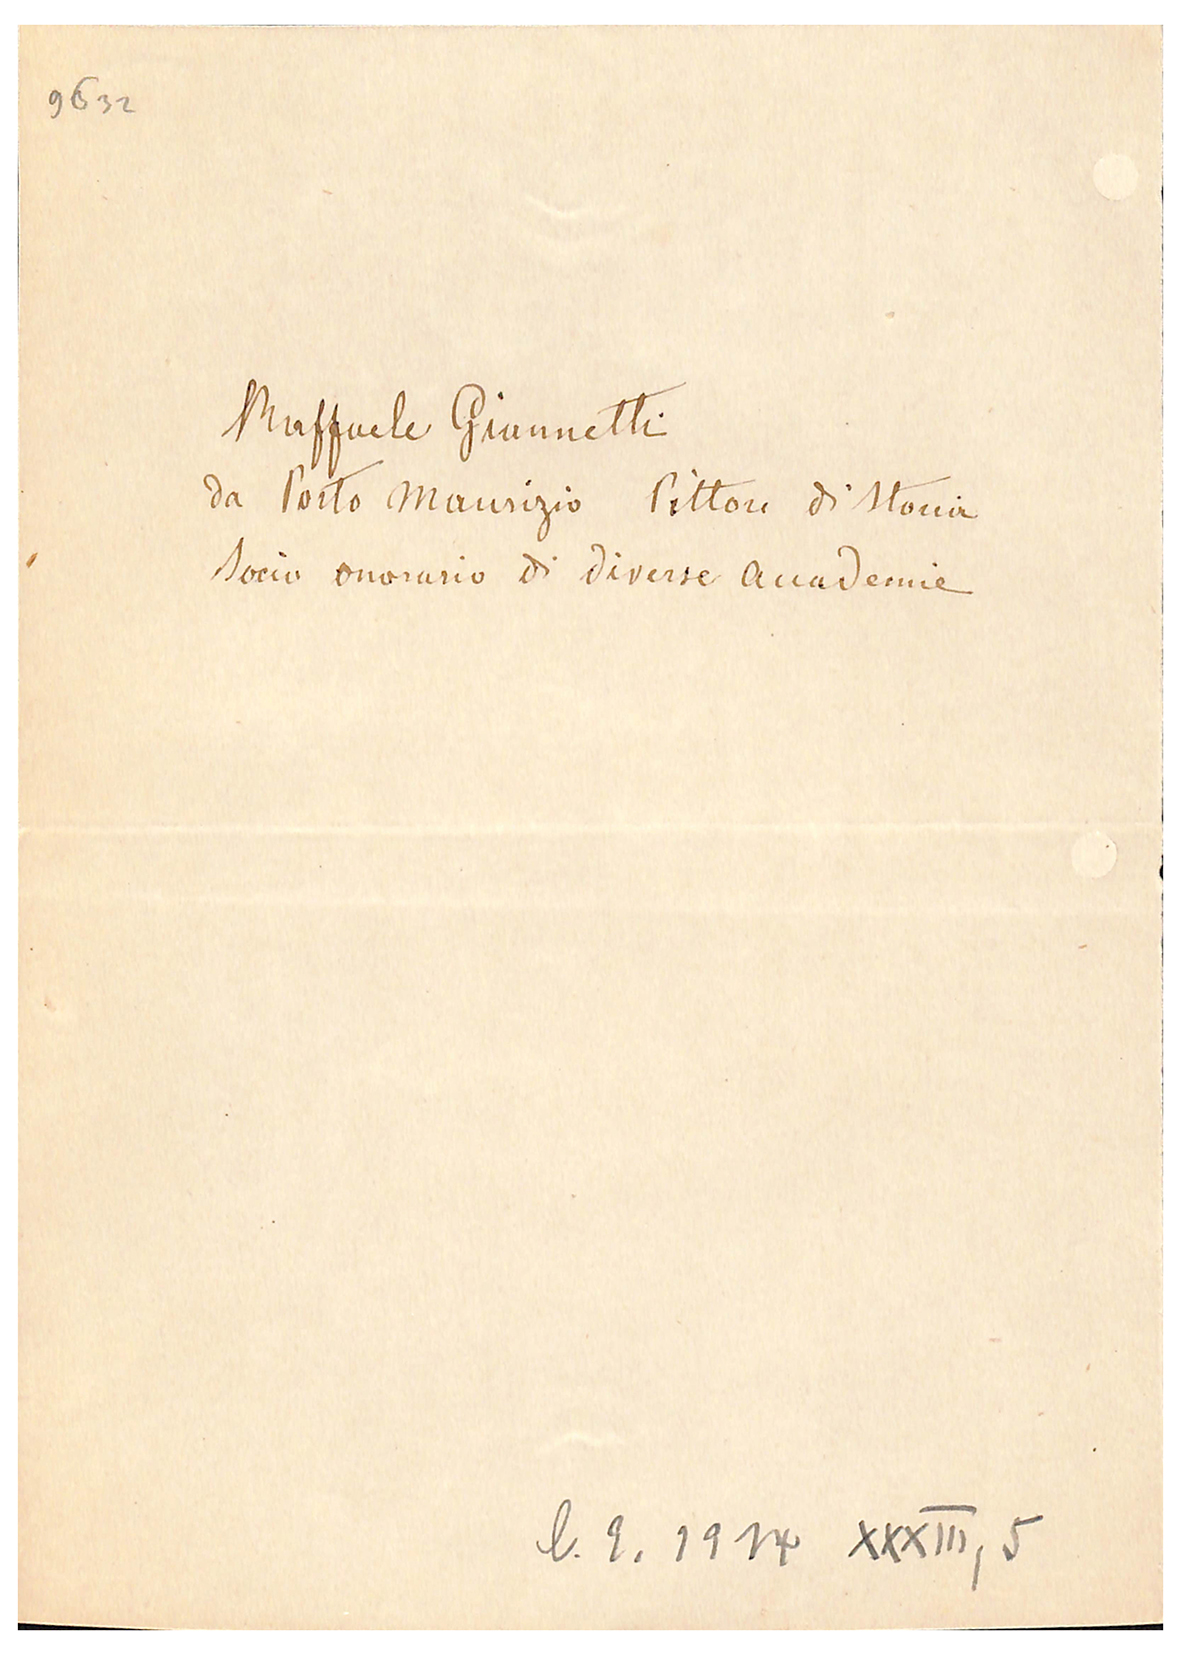 9632
Raffaele Giannetti
da Porto Maurizio Pittore di Storia
Socio onorario di diverse Accademie
l. g. 1914 XXXIII, 5